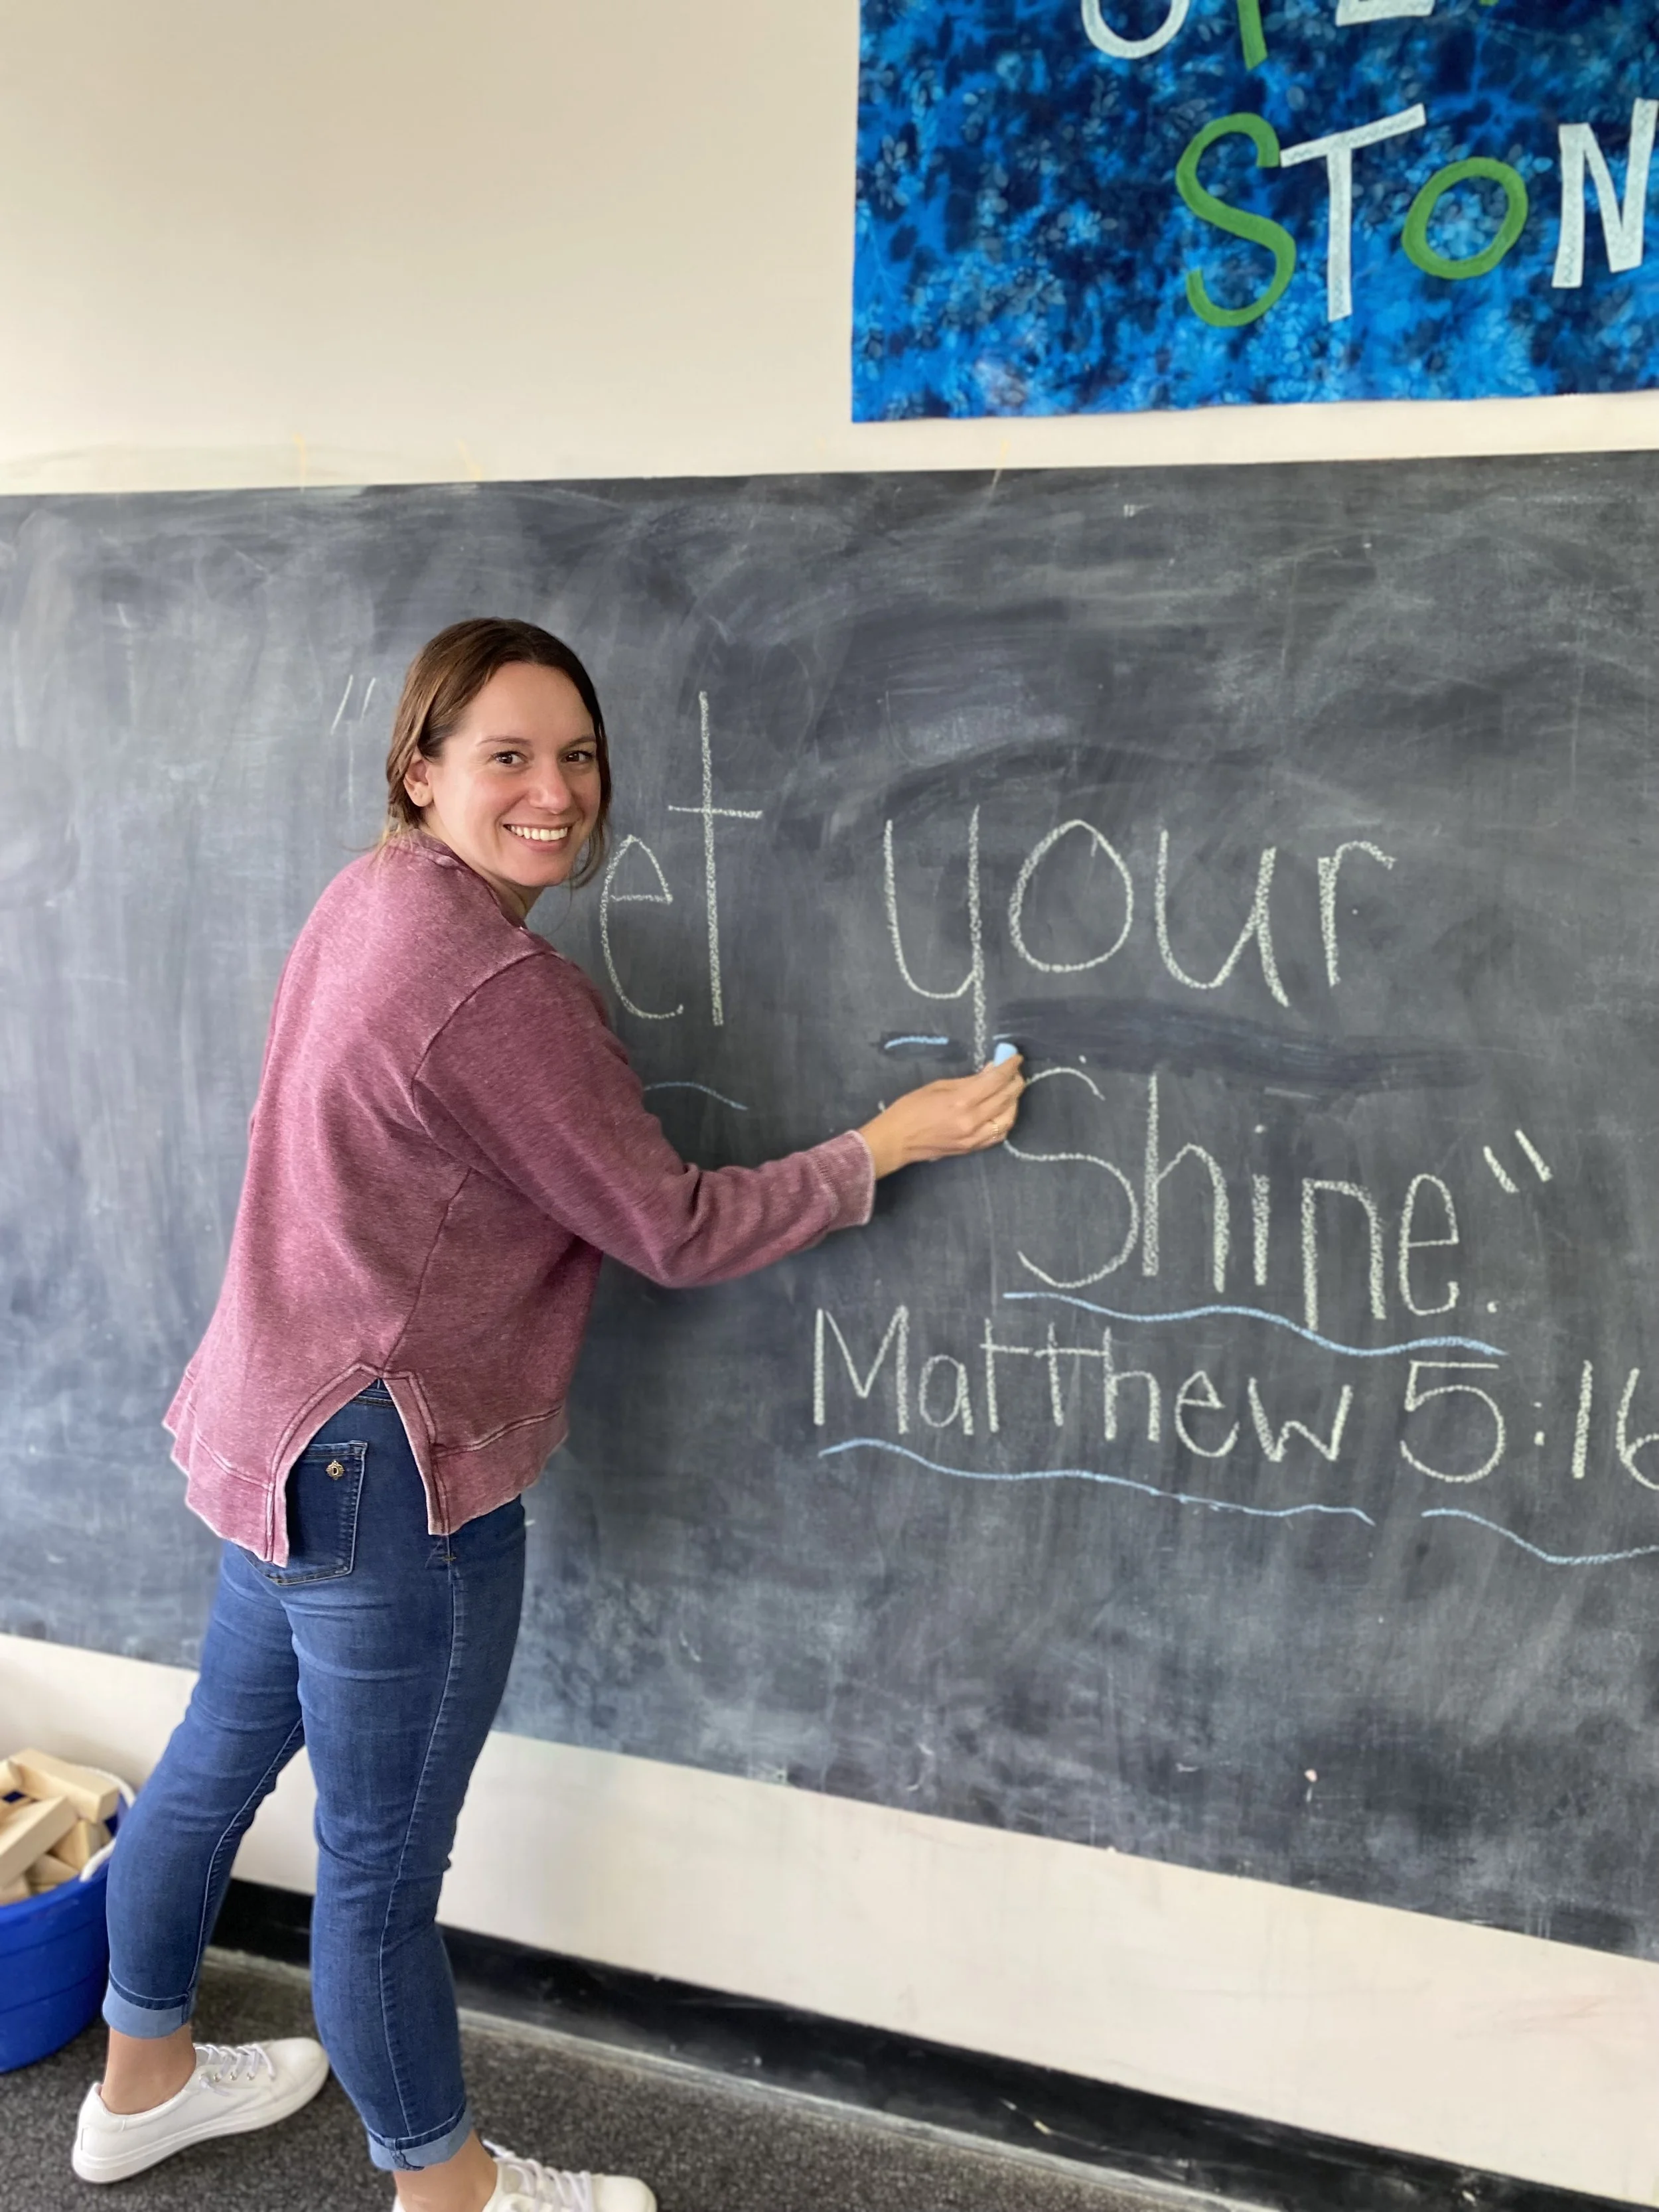 STON
"et your
Shine."
Matthew 5:16